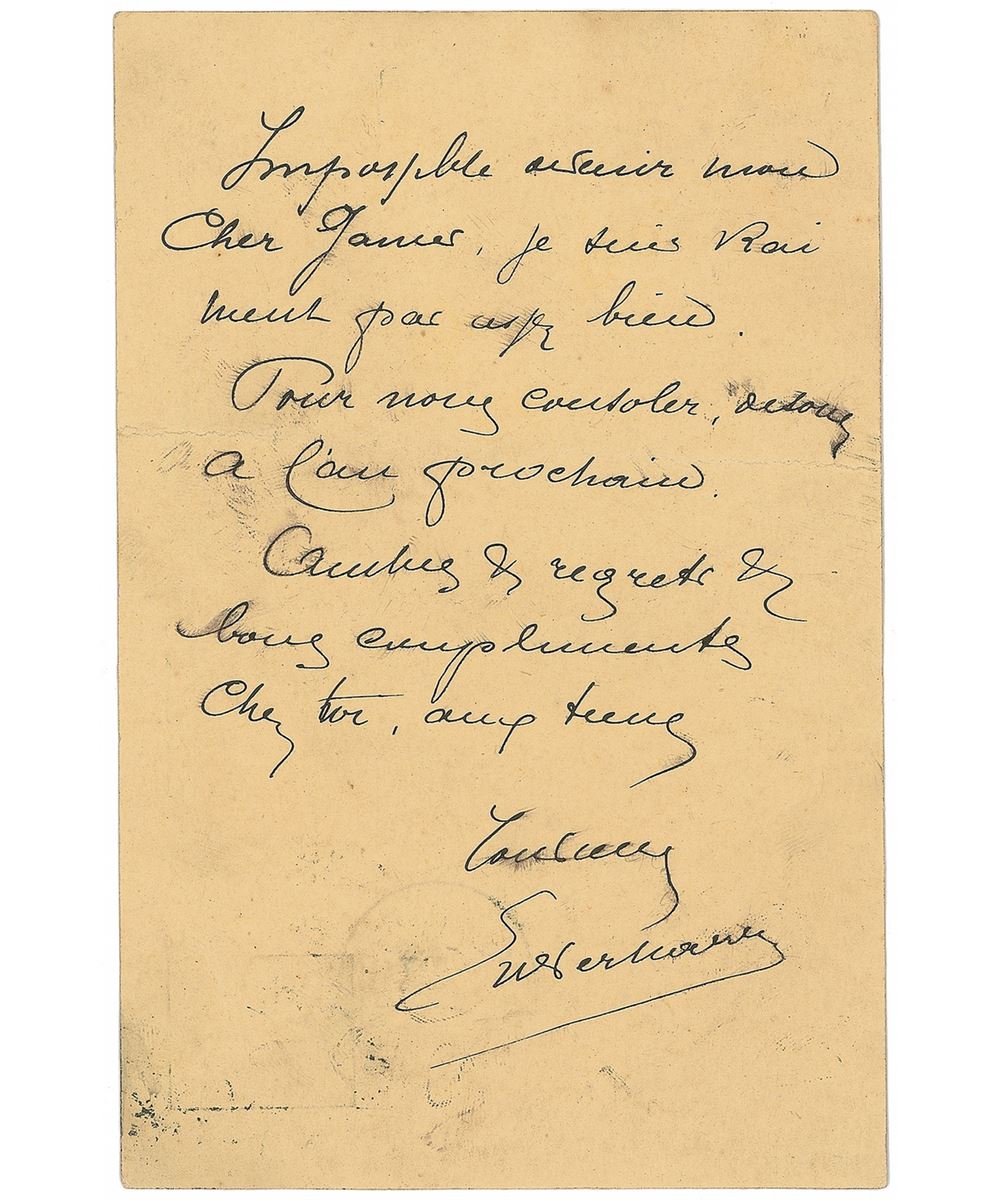 Impossible de venir mon
Cher James, je suis vrai
ment pas assez bien.
Pour nous consoler, disons
a l'an prochain.
& regrets &
bons compliments
Chez toi, aux tiens
Verhaeren